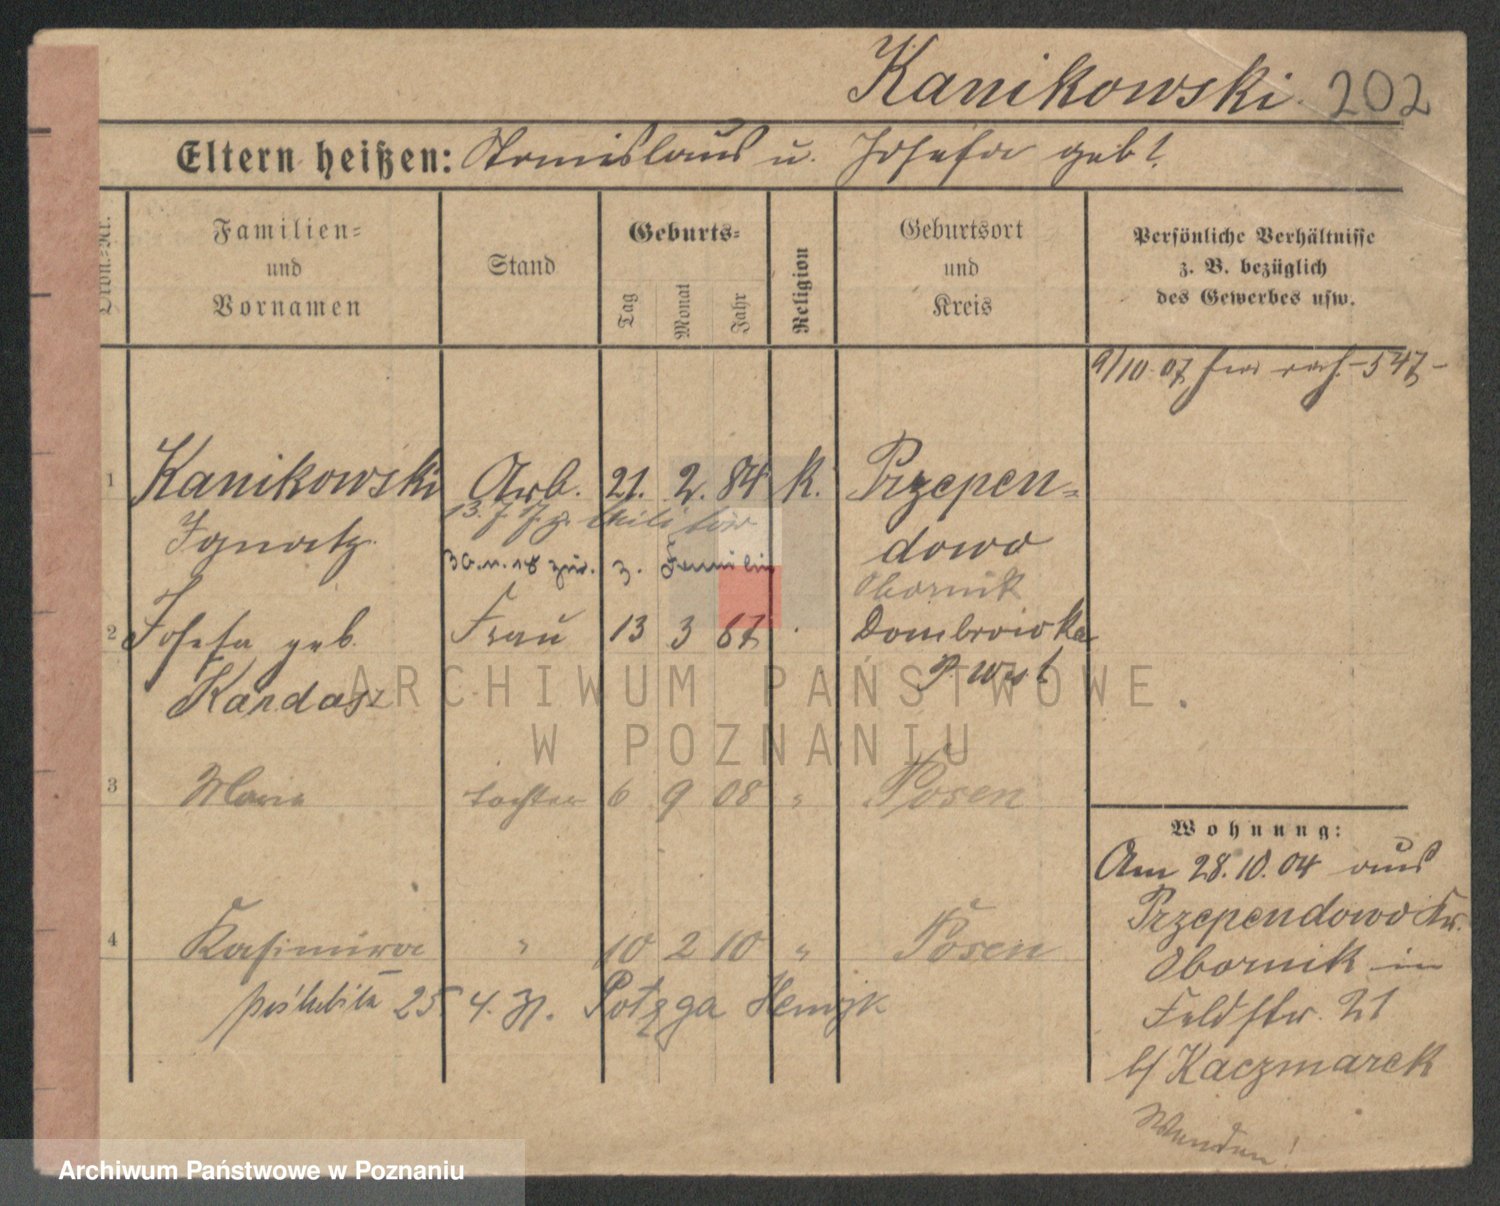 Kanikowski. 202
Eltern heißen: Stanislaus u. Josefa geb ?
Familien=
und
Vornamen
Stand
Geburts=
Tag
Monat
Jahr
Religion
Geburtsort
und
Kreis
Persönliche Verhältnisse
z. B. bezüglich
des Gewerbes usw.
9/10 07 547
1 Kanikowski Arb. 21. 2. 84 K. Przepen=
13. 7 Militär
Ignatz. dowo
30.11.18 zur. z. Familie
Obornik
2 Josefa geb. Frau 13 3 87 Dombrowka
Kardasz P West
3 Marie Tochter 6 9 08 " Posen
Wohnung:
Am 28.10.04 aus
Przependowo Kr.
Obornik in
Feldstr. 21
b/ Kaczmarek
Wenden!
4 Kasimira " 10 2 10 " Posen
poślubiła 25 4. 31. Potęga Henryk
ARCHIWUM PAŃSTWOWE
W POZNANIU
Archiwum Państwowe w Poznaniu